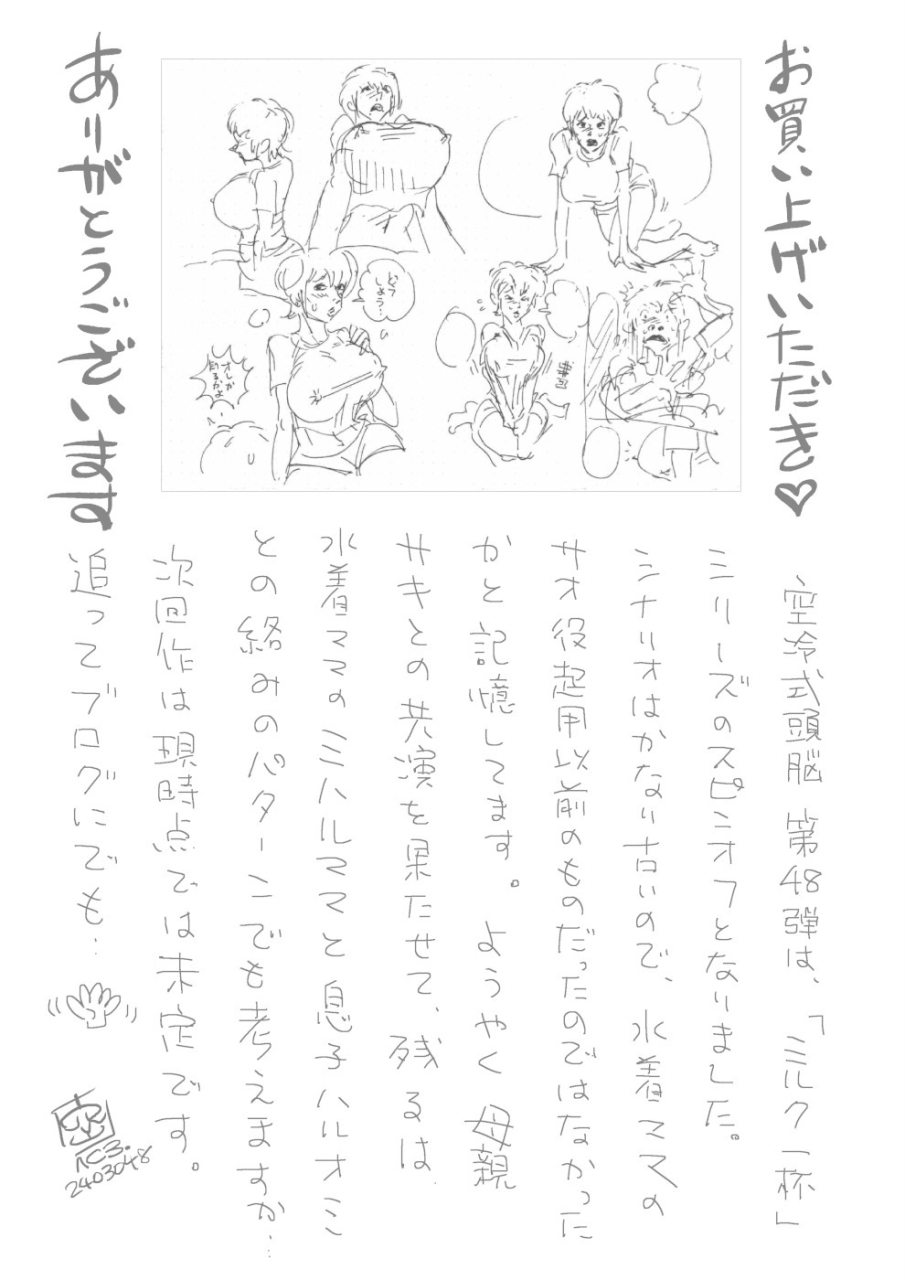 お買い上げいただき♡
ありがとうございます
どうしよう…
オレが知るかよ…!
空冷式頭脳 第48弾は、「ミルク一杯」
シリーズのスピンオフとなりました。
シナリオはかない古いので、水着ママの
サオ役起用以前のものだったのではなかった
かと記憶してます。ようやく母親
サキとの共演を果たせて、残るは
水着ママのミハルママと息子ハルオミ
との絡みのパターンでも考えますか…
次回作は現時点では未定です。
追ってブログにでも…
2403048